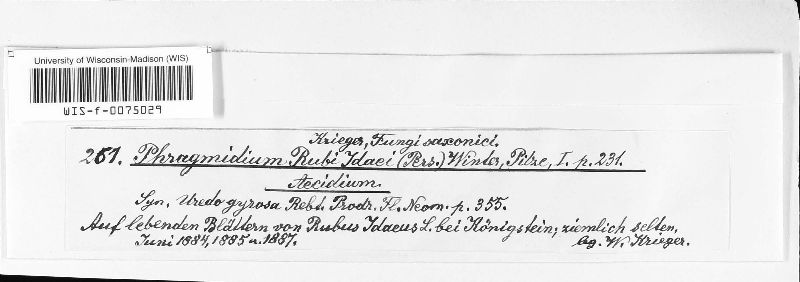 University of Wisconsin-Madison (WIS)
WIS-f-0075029
Krieger, Fungi saxonici.
261. Phragmidium Rubi Idaei (Pers.) Winter, Pilze, I. p. 231.
Aecidium.
Syn. Uredo gyrosa Rebt. Prodr. Fl. Neom. p. 355.
Auf lebenden Blättern von Rubus Idaeus L. bei Königstein; ziemlich selten,
Juni 1884, 1885 u. 1887.
lg. W. Krieger.